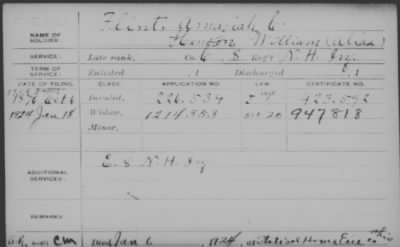 NAME OF SOLDIER:
Flint, Amasiah C.
Thompson, William (Alias)
SERVICE:
Late rank, Co. C, 8 Reg't N.H. Inf.
TERM OF SERVICE:
Enlisted , 1 Discharged , 1
DATE OF FILING. CLASS. APPLICATION NO. LAW. CERTIFICATE NO.
1876 Oct 6 Invalid, 226.534 423.592
1924 Jan 18 Widow, 1214353 5-1-20 947818
Minor,
ADDITIONAL SERVICES:
E. 8 N.H. Inf.
REMARKS:
died Jan 6, 1924, at Home Erie Co Ohio